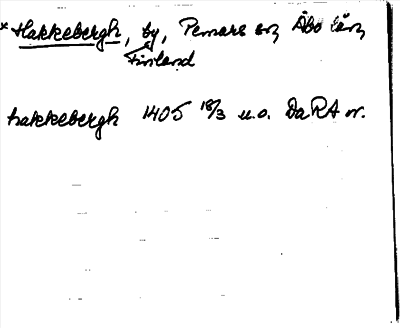 *Hakkebergh, by, Pemars sn, Åbo län,
Finland
hakkebergh 1405 18/3 u.o. DaRA or.